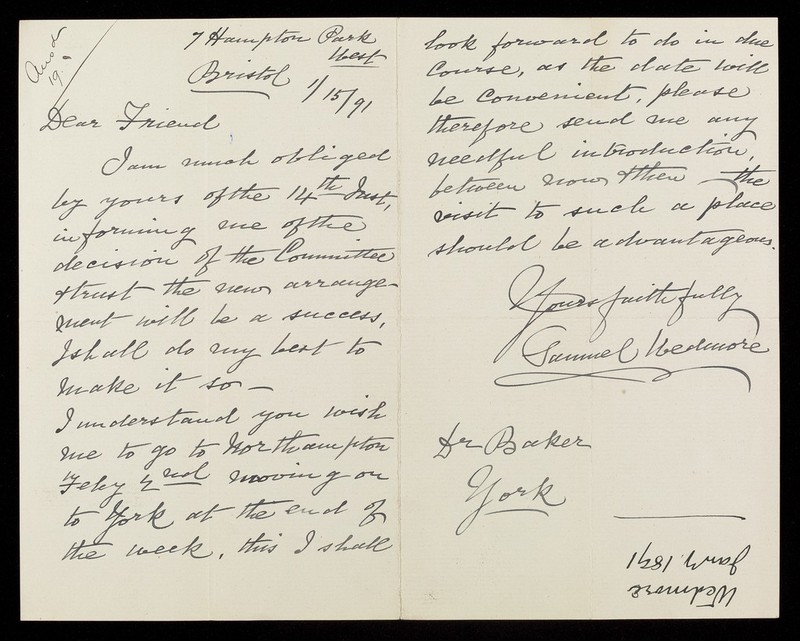 Ansd
19
7 Hampton Park
West
Bristol 1/15/91
Dear Friend
I am much obliged
by yours of the 14th Inst,
informing me of the
decision of the Committee
& trust the new arrange-
ment will be a success,
I shall do my best to
make it so —
I understand you wish
me to go to Northampton
Feby 2nd moving on
to York at the end of
the week, this I shall
look forward to do in due
Course, as the date will
be convenient, please
therefore send me any
needful introduction,
between now & then the
visit to such a place
should be advantageous.
Yours faithfully
Samuel Wedmore
Dr Baker
York
Wedmore